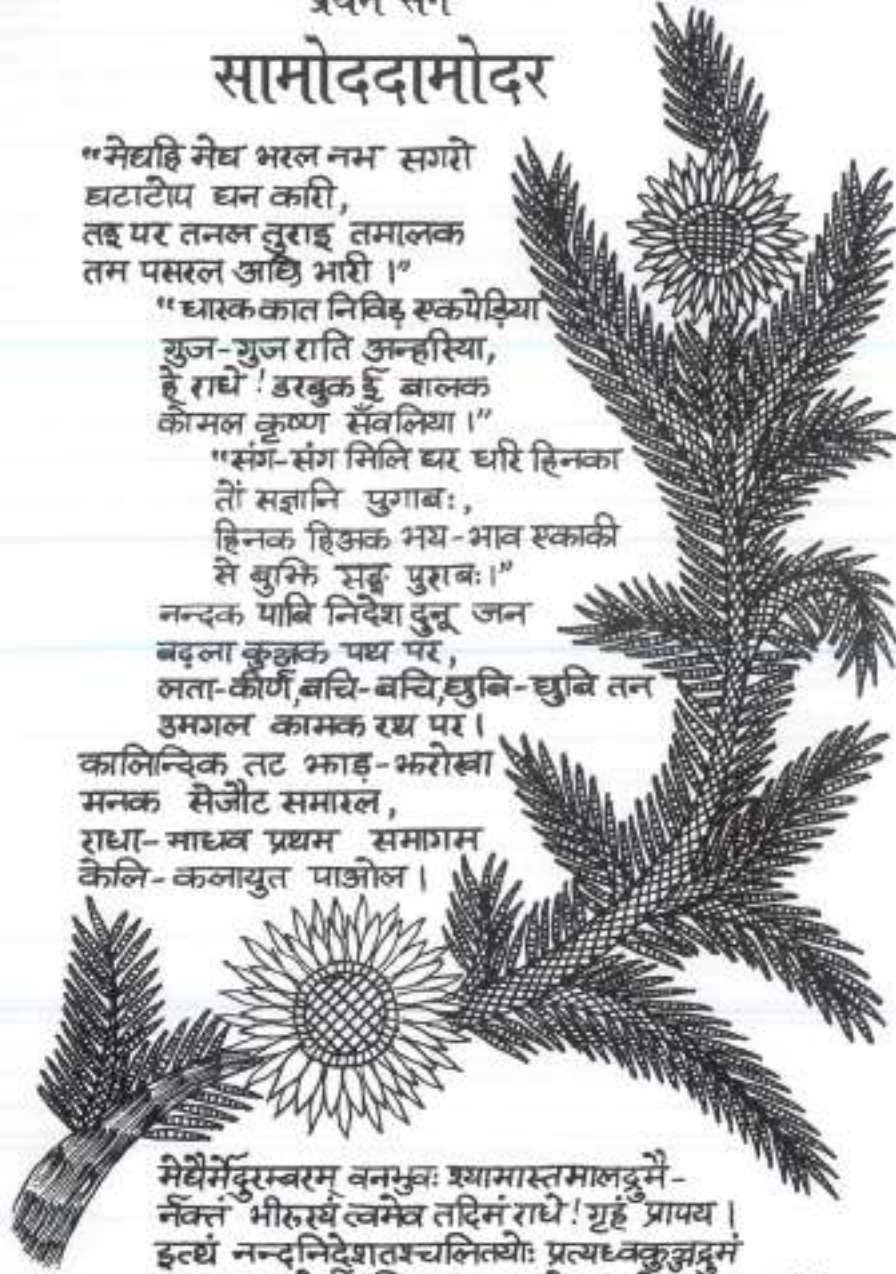 प्रथम सर्ग
सामोददामोदर
"मेघहि मेघ भरल नभ सगरो
घटाटोप घन कारी,
तइ पर तनल तुराइ तमालक
तम पसरल अछि भारी ।"
"धारक कात निविड़ एकपेड़िया
गुज-गुज राति अन्हरिया,
हे राधे ! डरबुक ई बालक
कोमल कृष्ण सँवलिया ।"
"संग-संग मिलि घर धरि हिनका
तोँ सज्ञानि पुगाबः,
हिनक हिअक भय-भाव एकाकी
से बुझि सङ्ग पुराबः।"
नन्दक पाबि निदेश दुनू जन
बढ़ला कुञ्जक पथ पर,
लता-कीर्ण,बचि-बचि,छुबि-छुबि तन
उमगल कामक रथ पर ।
कालिन्दिक तट झाड़-झरोखा
मनक सेजौट समारल,
राधा-माधव प्रथम समागम
केलि-कलायुत पाओल ।
मेघैर्मेदुरम्बरम् वनभुवः श्यामास्तमालद्रुमै-
र्नक्तं भीरुरयं त्वमेव तदिमं राधे ! गृहं प्रापय ।
इत्थं नन्दनिदेशतश्चलितयोः प्रत्यध्वकुञ्जद्रुमं